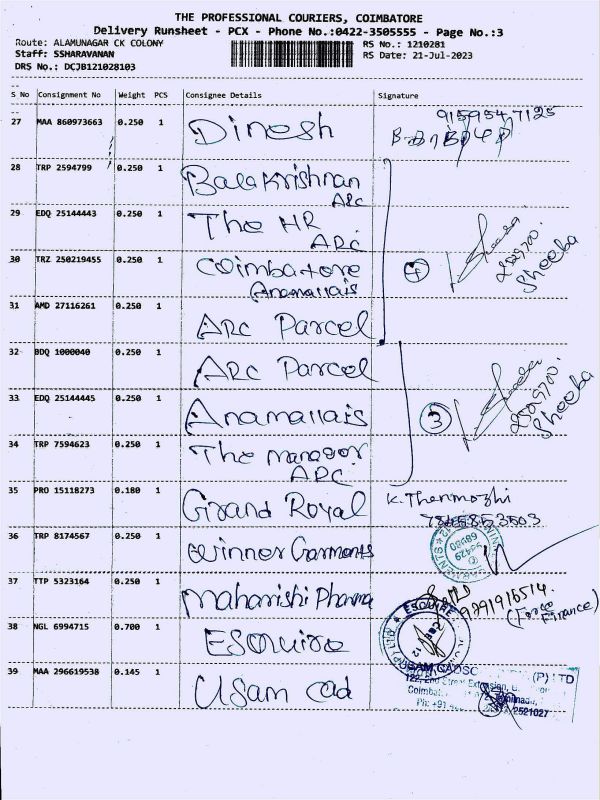 THE PROFESSIONAL COURIERS, COIMBATORE
Delivery Runsheet - PCX - Phone No.:0422-3505555 - Page No.:3
Route: ALAMUNAGAR CK COLONY RS No.: 1210281
Staff: SSHARAVANAN RS Date: 21-Jul-2023
DRS No.: DCJB121028103
S No Consignment No Weight PCS Consignee Details Signature
27 MAA 860973663 0.250 1 Dinesh 9159547125
28 TRP 2594799 0.250 1 Balakrishnan
ARC
29 EDQ 25144443 0.250 1 The HR
ARC
30 TRZ 250219455 0.250 1 Coimbatore 4 2529700. Sheeba
Anamallais
31 AMD 27116261 0.250 1 ARC Parcel
32 BDQ 1000040 0.250 1 ARC Parcel
33 EDQ 25144445 0.250 1 Anamallais 3 2529700. Sheeba
34 TRP 7594623 0.250 1 The manager
ARC
35 PRO 15118273 0.180 1 Grand Royal K. Thenmozhi
36 TRP 8174567 0.250 1 Winner Garments
37 TTP 5323164 0.250 1 Maharishi Pharma
38 NGL 6994715 0.700 1 Esquire ESQUIRE
39 MAA 296619538 0.145 1 Usam Cad (P) LTD
2521027